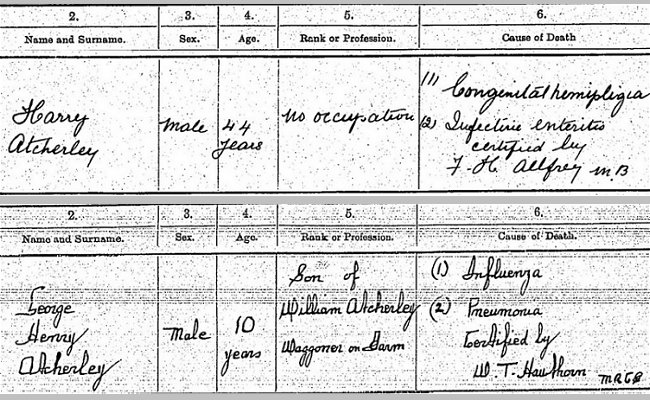 2. 3. 4. 5. 6.
Name and Surname. Sex. Age. Rank or Profession. Cause of Death
Harry Atcherley Male 44 years No occupation (1) Congenital hemiplegia
(2) Infective enteritis
certified by
F. H. Allfrey M.B
2. 3. 4. 5. 6.
Name and Surname. Sex. Age. Rank or Profession. Cause of Death.
George Henry Atcherley Male 10 years Son of William Atcherley Waggoner on Farm (1) Influenza
(2) Pneumonia
Certified by
W. T. Hawthorn MRCS